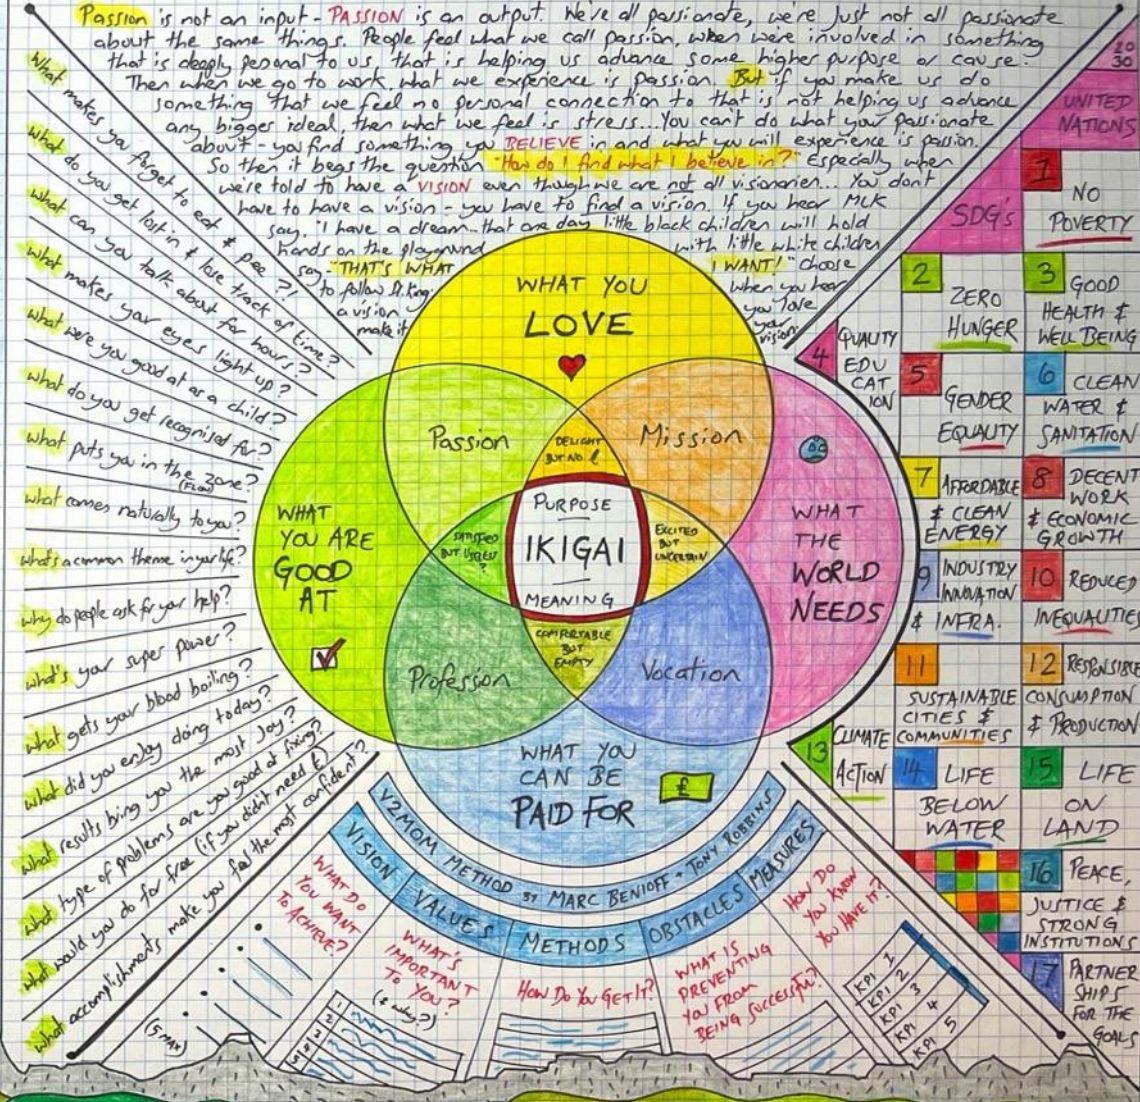 Passion is not an input - PASSION is an output. We're all passionate, we're just not all passionate
about the same things. People feel what we call passion, when were involved in something
that is deeply personal to us, that is helping us advance some higher purpose or cause.
Then when we go to work, what we experience is passion. But if you make us do
something that we feel no personal connection to that is not helping us advance
any bigger ideal, then what we feel is stress... You can't do what your passionate
about - you find something you BELIEVE in and what you will experience is passion.
So then it begs the question "How do I find what I believe in?" Especially when
we're told to have a VISION even though we are not all visionaries... You don't
have to have a vision - you have to find a vision. If you hear MLK
say.. "I have a dream.. that one day little black children will hold
hands on the playground with little white children
say - "THAT'S WHAT I WANT!" choose
to follow Dr.King when you hear
a vision you love
make it your
vision
What makes you forget to eat & pee?!
What do you get lost in & lose track of time?
What can you talk about for hours?
What makes your eyes light up?
What were you good at as a child?
What do you get recognised for?
What puts you in the zone?
(FLOW)
What comes naturally to you?
What's a common theme in your life?
Why do people ask for your help?
What's your super power?
What gets your blood boiling?
What did you enjoy doing today?
What results bring you the most joy?
What type of problems are you good at fixing?
What would you do for free (if you didn't need £)
What accomplishments make you feel the most confident?
WHAT YOU
LOVE
Passion
DELIGHT
BUT NO £
Mission
WHAT
YOU ARE
GOOD
AT
SATISFIED
BUT USELESS
?
PURPOSE
IKIGAI
MEANING
EXCITED
BUT
UNCERTAIN
WHAT
THE
WORLD
NEEDS
COMFORTABLE
BUT
EMPTY
Profession
Vocation
WHAT YOU
CAN BE
PAID FOR
£
V2MOM METHOD BY MARC BENIOFF + TONY ROBBINS
VISION
VALUES
METHODS
OBSTACLES
MEASURES
WHAT DO
YOU WANT
TO ACHIEVE?
(5 MAX)
WHAT'S
IMPORTANT
TO YOU?
(& why?)
1
2
3
4
5
HOW DO YOU GET IT?
WHAT IS
PREVENTING
YOU FROM
BEING SUCCESSFUL?
HOW DO
YOU KNOW
YOU HAVE IT?
KPI 1
KPI 2
KPI 3
KPI 4
KPI 5
20
30
UNITED
NATIONS
SDG's
1 NO
POVERTY
2 ZERO
HUNGER
3 GOOD
HEALTH &
WELL BEING
4 QUALITY
EDU
CAT
ION
5 GENDER
EQUALITY
6 CLEAN
WATER &
SANITATION
7 AFFORDABLE
& CLEAN
ENERGY
8 DECENT
WORK
& ECONOMIC
GROWTH
9 INDUSTRY
INNOVATION
& INFRA.
10 REDUCED
INEQUALITIES
11
SUSTAINABLE
CITIES &
COMMUNITIES
12 RESPONSIBLE
CONSUMPTION
& PRODUCTION
13 CLIMATE
ACTION
14 LIFE
BELOW
WATER
15 LIFE
ON
LAND
16 PEACE,
JUSTICE &
STRONG
INSTITUTIONS
17 PARTNER
SHIPS
FOR THE
GOALS